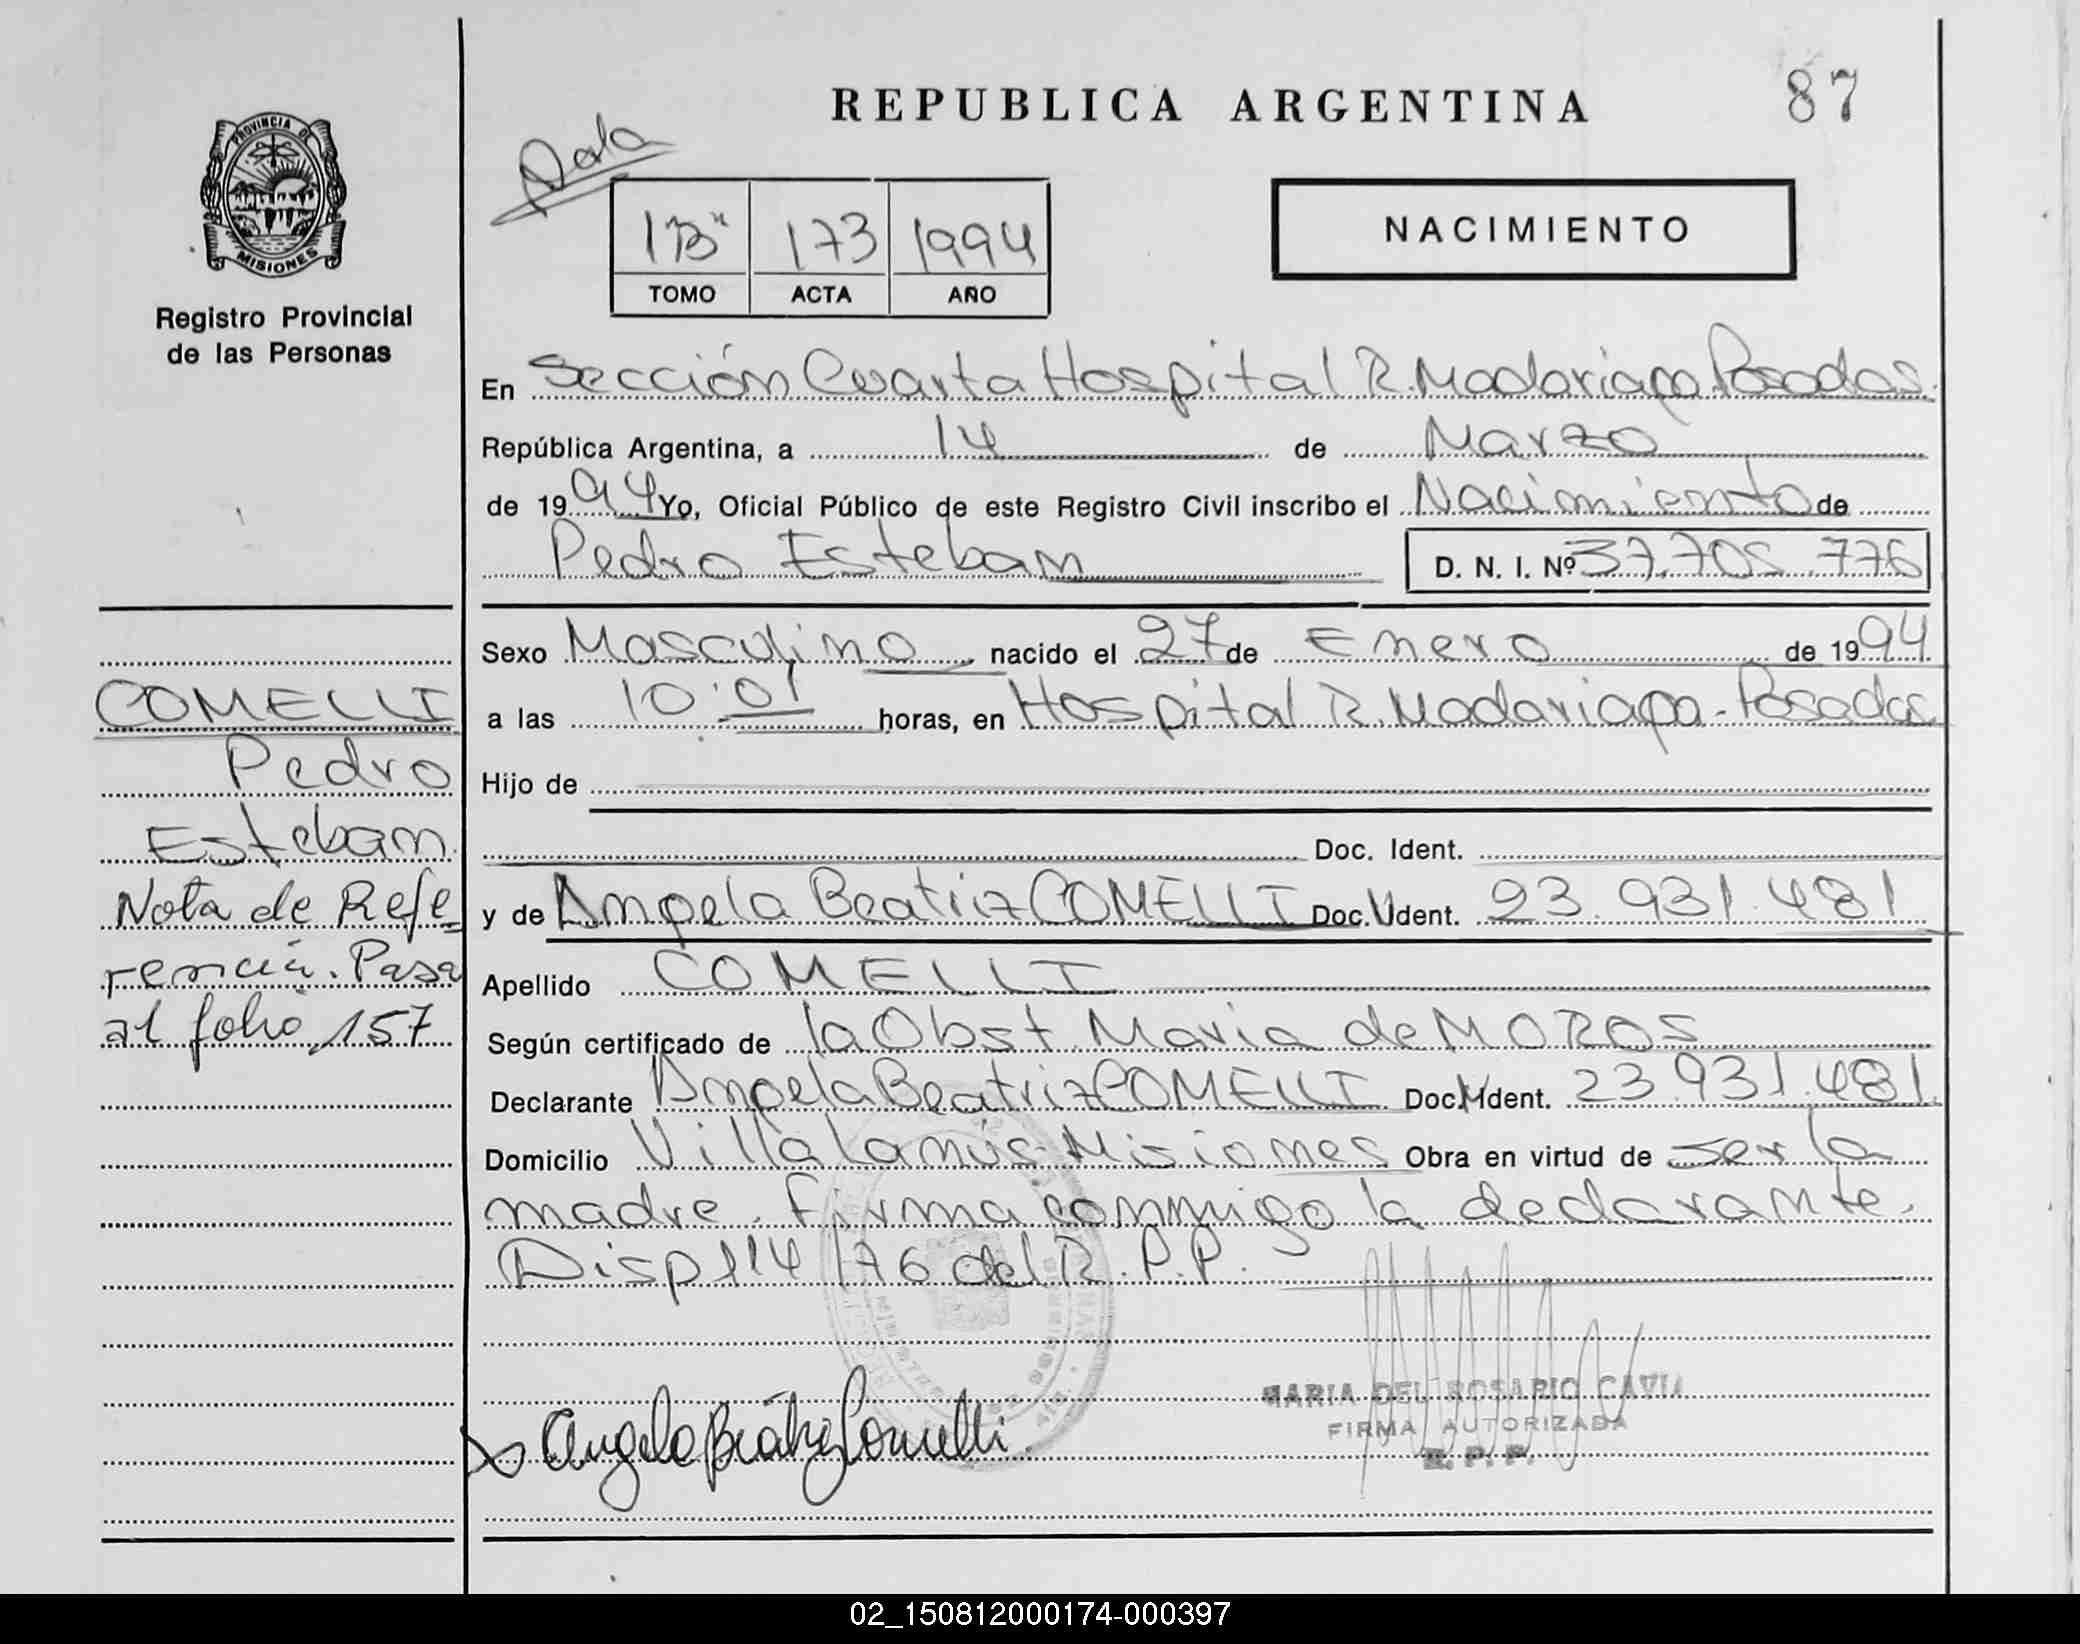 REPUBLICA ARGENTINA
87
PROVINCIA DE
MISIONES
Registro Provincial
de las Personas
1"B" 173 1994
TOMO ACTA AÑO
NACIMIENTO
En Sección Cuarta Hospital R. Madariaga Posadas.
República Argentina, a 14 de Marzo
de 1994 Yo, Oficial Público de este Registro Civil inscribo el Nacimiento de
Pedro Esteban D. N. I. Nº 37.705.776
Sexo Masculino nacido el 27 de Enero de 1994
a las 10:01 horas, en Hospital R. Madariaga - Posadas
Hijo de
Doc. Ident.
y de Angela Beatriz COMELLI Doc. Ident. 23.931.481
Apellido COMELLI
Según certificado de la Obst. Maria de MOROS
Declarante Angela Beatriz COMELLI Doc. Ident. 23.931.481.
Domicilio Villa Lanús-Misiones Obra en virtud de ser la
madre. Firma conmigo la declarante.
Disp 114/76 del R.P.P.
COMELLI
Pedro
Esteban.
Nota de Refe-
rencia. Pasa
al folio 157
Angela Beatriz Comelli.
MARIA DEL ROSARIO CAVIA
FIRMA AUTORIZADA
R. P. P.
02_150812000174-000397